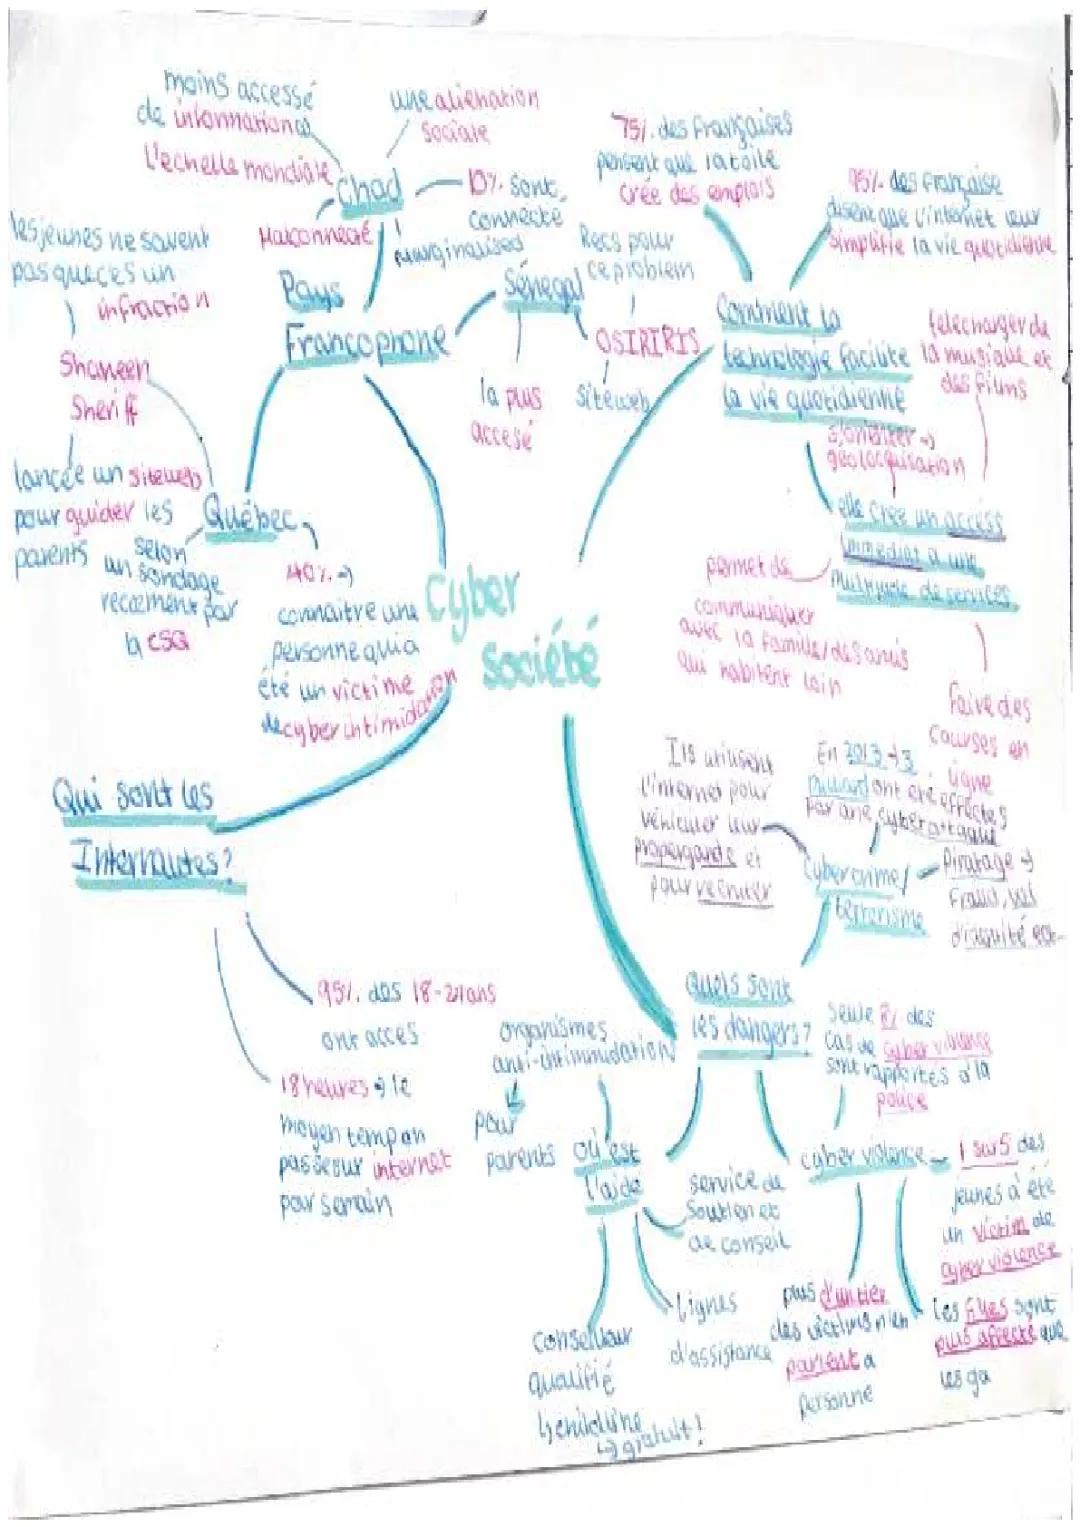 Cyber
société
Pays
Francophone
Chad
moins accessé
de informations
L'echelle mondiale
une alienation
sociale
10% sont
connecté
marginalised
Malconnecté
Sénégal
la plus
accesé
OSIRIRIS
Recs pour
ce problem
siteweb
Québec
les jeunes ne savent
pas que c'es un
infraction
Shaheen
Sheriff
lancée un siteweb
pour guider les
parents
selon
un sondage
par
la CSQ
40% →
connaitre une
personne qui a
été un victime
de cyber intimidation
Comment la
technologie facilite
la vie quotidienne
75% des Françaises
pensent que la toile
crée des emplois
95% des française
disent que l'internet leur
simplifie la vie quotidienne
telecharger de
la musique et
des films
s'orienter →
géolocalisation
elle crée un access
immediat a une
multitude de services
permet de
communiquer
avec la famille/des amis
qui habitent loin
faire des
courses en
ligne
Qui sont les
Internautes?
95% des 18-24 ans
ont acces
18 heures → le
moyen temp on
passe sur internet
par semain
Quels sont
les dangers?
Cybercrime/
terrorisme
Ils utilisent
l'internet pour
véhiculer leur
propergande et
pour recruter
En 2013 → 3
ont été effectés
par une cyberattaque
Piratage →
Fraud, vol
d'identité ect
cyber violence
Seule 8% des
cas de cyber violence
sont rapportés a la
police
1 sur 5 des
jeunes a été
un victim de
cyber violence
Les filles sont
plus affecté que
les ga
plus d'un tier
des victims n'en
parlent a
personne
où est
l'aide
organismes
anti-intimmidation
pour
parents
service de
Soutien et
de conseil
Lignes
d'assistance
Conseillaur
qualifié
↳ childline
↳ gratuit!